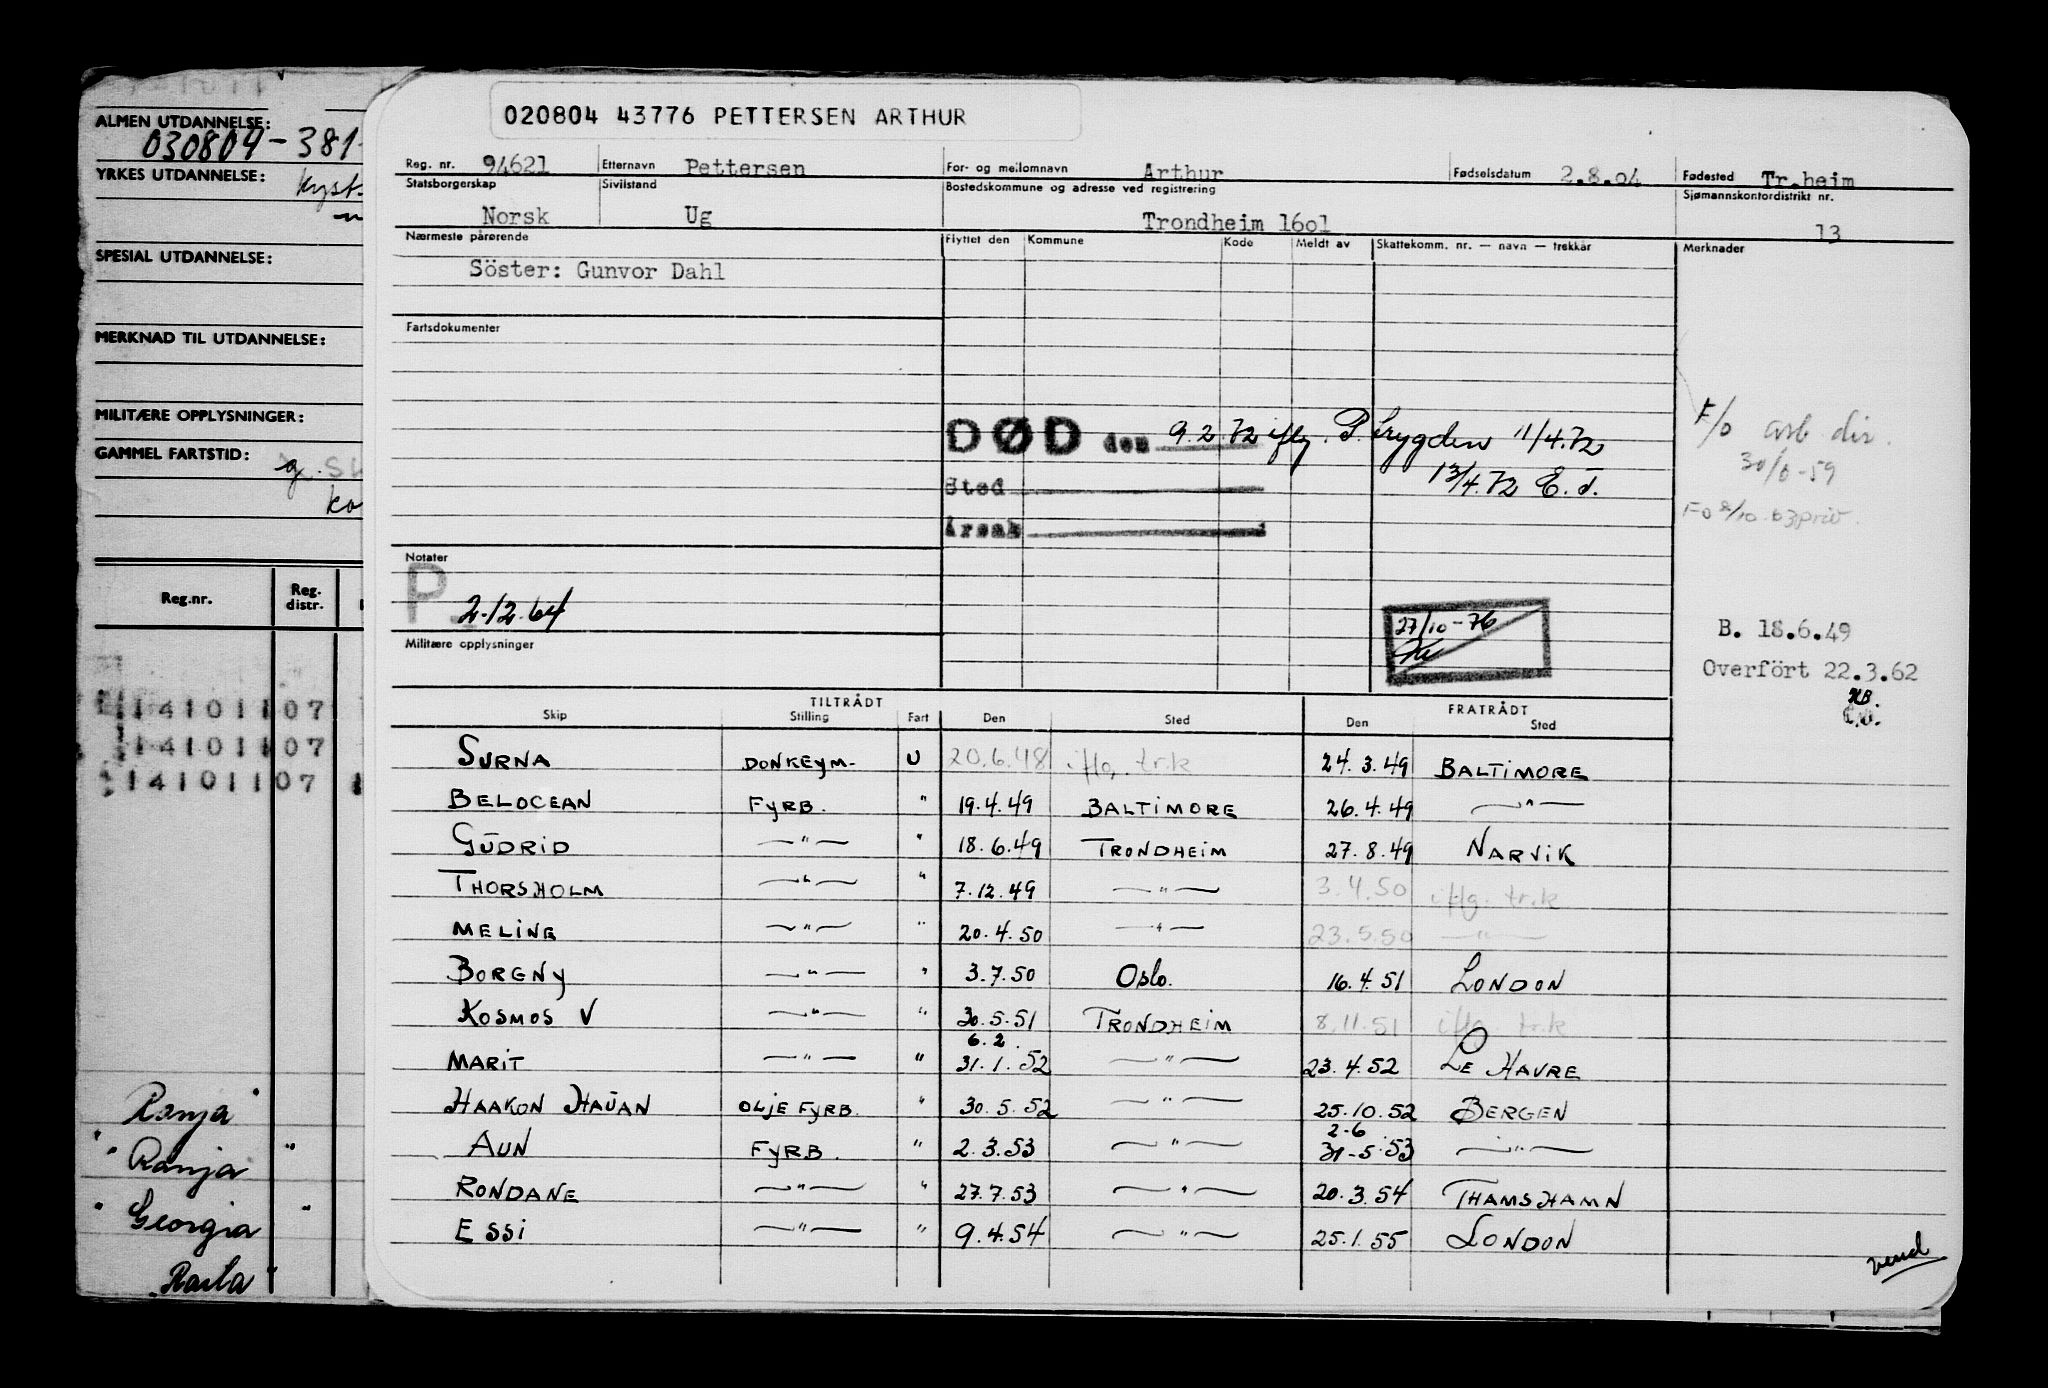 020804 43776 PETTERSEN ARTHUR
Reg. nr. 94621 Etternavn Pettersen For- og mellomnavn Arthur Fødselsdatum 2.8.04 Fødested Tr.heim
Statsborgerskap Norsk Sivilstand Ug Bostedskommune og adresse ved registrering Trondheim 1601 Sjømannskontordistrikt nr. 13
Nærmeste pårørende Flyttet den Kommune Kode Meldt av Skattekomm. nr. — navn — trekkår Merknader
Söster: Gunvor Dahl
Fartsdokumenter
DØD den 9.2.72 iflg. P.trygden 11/4.72
13/4.72 E.T.
Sted
Årsak
F/o arb dir.
30/6-59
Fo 8/10.63 priv.
Notater
P 2.12.64
Militære opplysninger
27/10-76
B. 18.6.49
Overfört 22.3.62
TILTRÅDT FRATRÅDT
Skip Stilling Fart Den Sted Den Sted
SURNA DONKEYM- U 20.6.48 iflg. tr.k 24.3.49 BALTIMORE
BELOCEAN FYRB. " 19.4.49 BALTIMORE 26.4.49 —"—
GUDRID —"— " 18.6.49 TRONDHEIM 27.8.49 NARVIK
THORSHOLM —"— " 7.12.49 —"— 3.4.50 iflg. tr.k
MELINE —"— " 20.4.50 —"— 23.5.50 —"—
BORGNY —"— " 3.7.50 Oslo. 16.4.51 LONDON
KOSMOS V —"— " 30.5.51 TRONDHEIM 8.11.51 iflg. tr.k
6.2.
MARIT —"— " 31.1.52 —"— 23.4.52 LE HAVRE
HAAKON HAUAN OLJE FYRB. " 30.5.52 —"— 25.10.52 BERGEN
2-6
AUN FYRB. " 2.3.53 —"— 31-5.53 —"—
RONDANE —"— " 27.7.53 —"— 20.3.54 THAMSHAMN
ESSI —"— " 9.4.54 —"— 25.1.55 LONDON
vend
ALMEN UTDANNELSE:
030804-381-
YRKES UTDANNELSE: kyst-
SPESIAL UTDANNELSE:
MERKNAD TIL UTDANNELSE:
MILITÆRE OPPLYSNINGER:
GAMMEL FARTSTID:
Reg.nr. Reg. distr.
14101107
14101107
14101107
Ranja "
" Ranja "
" Georgia "